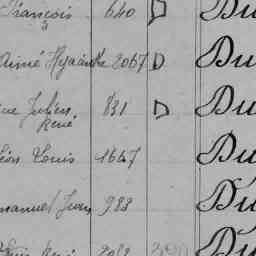 François 640 D Du
Aimé Hyacinthe 2067 D Du
Julien René 831 D Du
Léon Louis 1647 Du
Emmanuel Jean 983 Du
Du